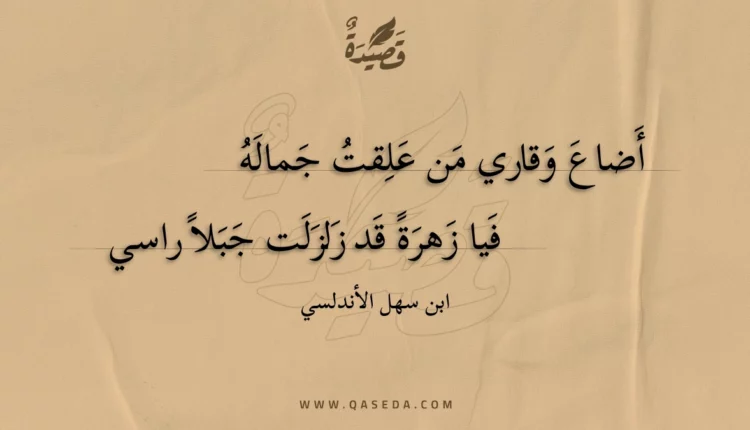 قَصِيدَةٌ
أَضاعَ وَقاري مَن عَلِقتُ جَمالَهُ
فَيا زَهرَةً قَد زَلزَلَت جَبَلاً راسي
ابن سهل الأندلسي
WWW.QASEDA.COM